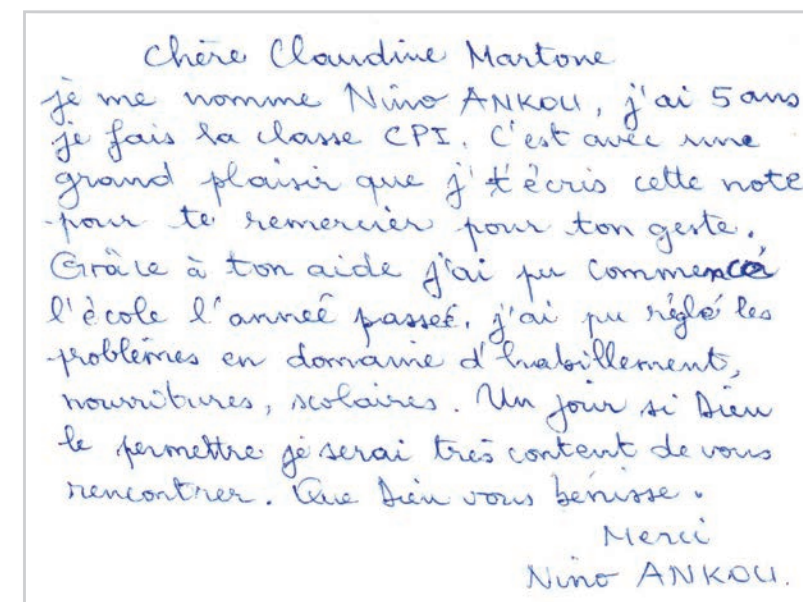 Chère Claudine Martone
je me nomme Nino ANKOU, j'ai 5 ans
je fais la classe CPI. C'est avec une
grand plaisir que j't'écris cette note
pour te remercier pour ton geste.
Grâce à ton aide j'ai pu commencé
l'école l'anneé passeé, j'ai pu réglé les
problèmes en domaine d'habillement,
nourritures, scolaires. Un jour si Dieu
le permettre je serai très content de vous
rencontrer. Que Dieu vous bénisse.
Merci
Nino ANKOU.